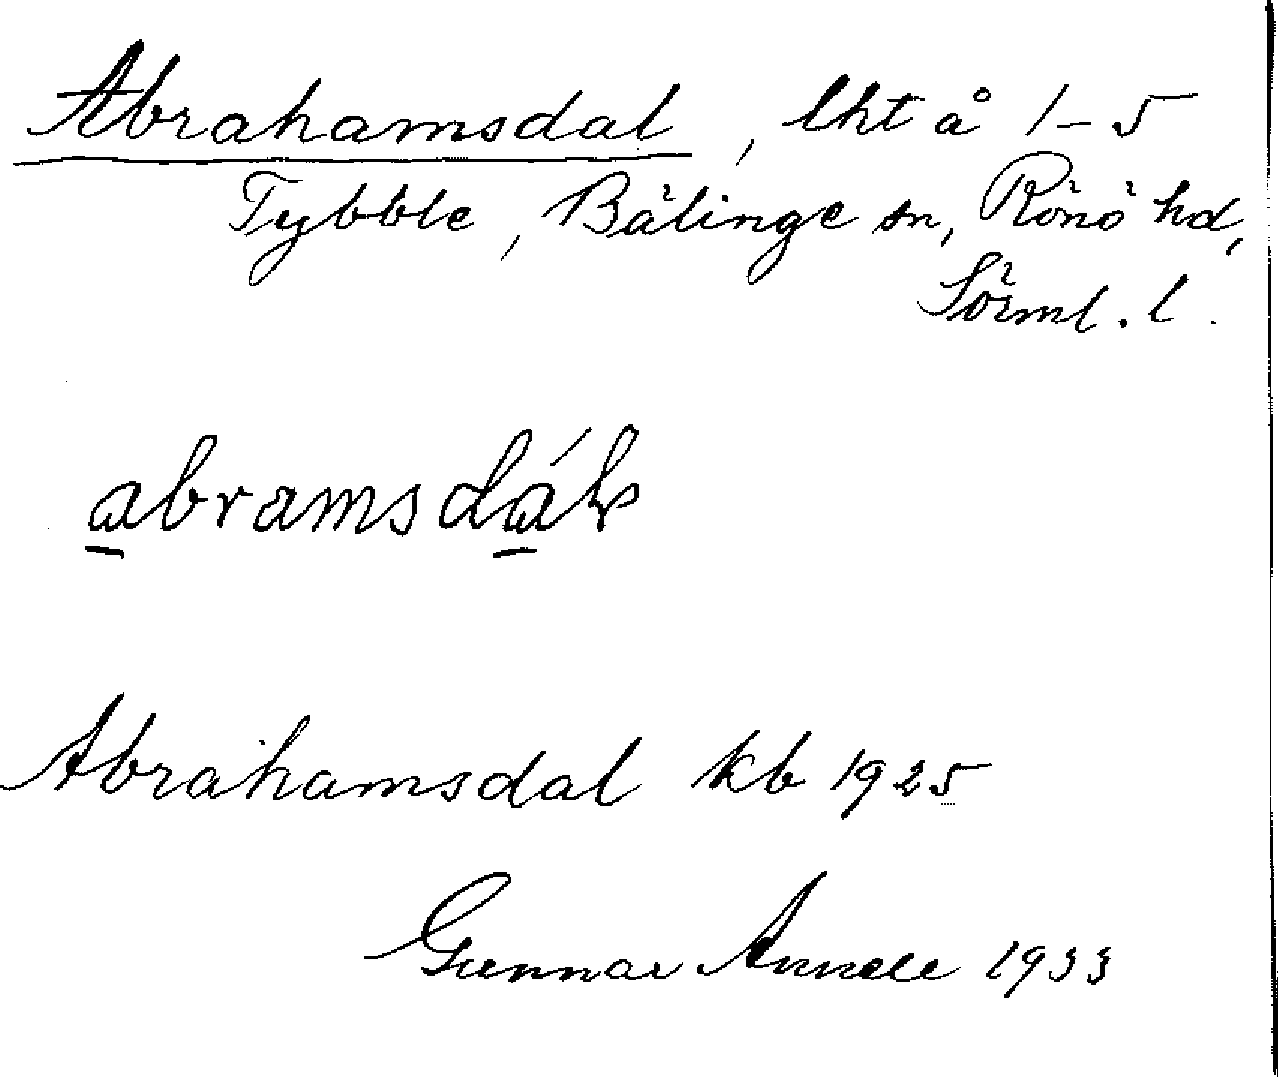 Abrahamsdal, lht å 1–5
Tybble, Bälinge sn, Rönö hd,
Sörml. l.
abramsdáls
Abrahamsdal kb 1925
Gunnar Annell 1933